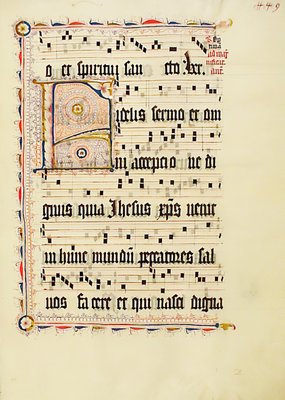 449
o et spiritui san cto.
Fidelis sermo et om
ni acceptio ne di
gnus quia Jhesus xp̄s uenit
in hunc mundū peccatores sal
uos fa cere et qui nasci digna